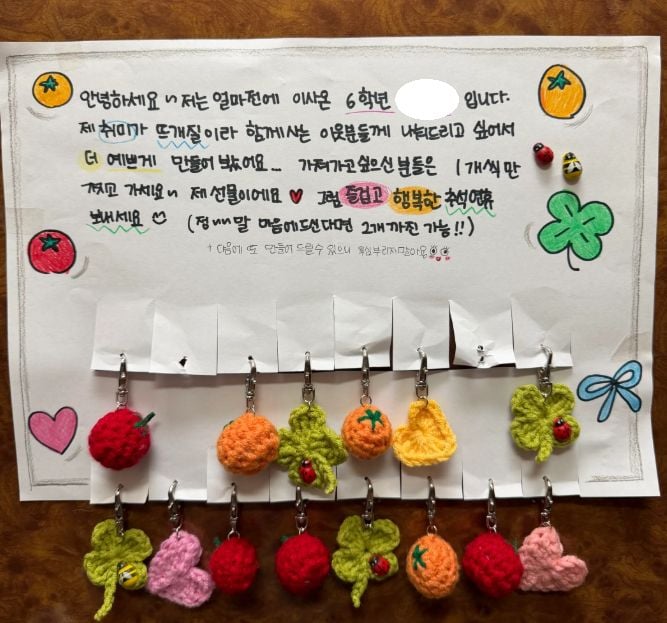 안녕하세요~ 저는 얼마전에 이사온 6학년 입니다.
제 취미가 뜨개질이라 함께사는 이웃분들께 나눠드리고 싶어서
더 예쁘게 만들어 봤어요... 가져가고싶으신 분들은 1개씩만
가지고 가세요~ 제 선물이에요 ♥ 그럼 즐겁고 행복한 추석연휴
보내세요 (정~말 마음에드신다면 2개까진 가능!!)
+ 다음에 또 만들어 드릴수 있으니 욕심부리지말아요